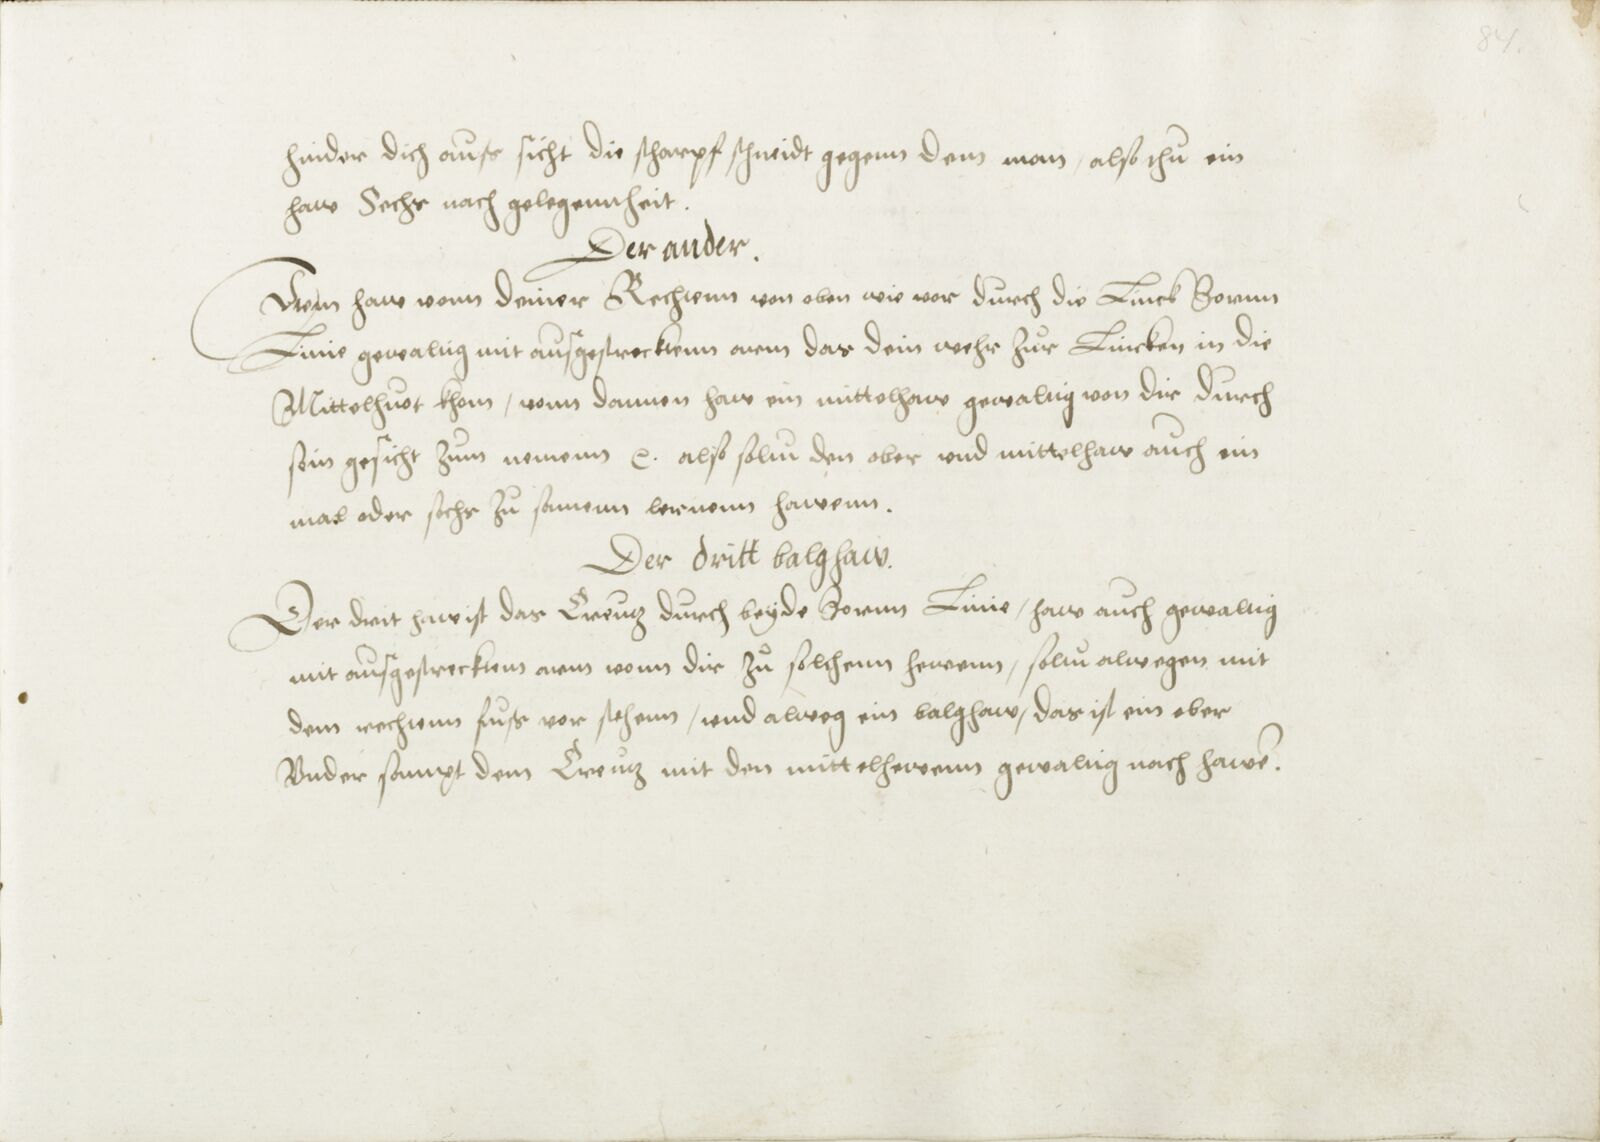 84.
hinder dich auss sicht die scharpf schneidt gegenn dem man, also thu ein
haw Sechs nach gelegennheit.
Der ander.
Item haw vonn deiner Rechtenn von oben wie vor durch die Linck Zornn
Linie gewaltig mit aussgestrecktenn arm das dein wehr zur Lincken in die
Mittelhuot khom, vonn dannen haw ein mittelhaw gewaltig von dir durch
sein gesicht zum nemenn c. also soltu den ober vnd mittelhaw auch ein
mal oder sechs zu samenn lernenn hawenn.
Der dritt balghaw.
Der drit haw ist das Creutz durch beyde Zornn Linie, haw auch gewaltig
mit aussgestrecktem arm vonn dir zu solchenn hewenn, soltu alwegen mit
dem rechtenn fuss vor stehenn, vnd alweg ein balghaw, das ist ein ober
Vnder sampt dem Creutz mit den mittelhewenn gewaltig nach hawē.